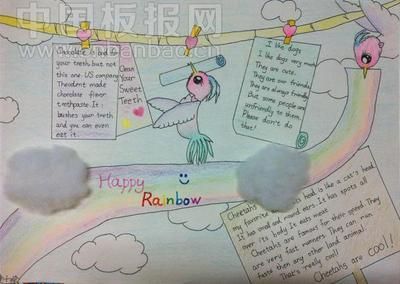 中国板报网
Chocolate is bad for
your teeth, but not
this one. US company
Theodent made
chocolate flavor
toothpaste. It
washes your teeth
and you can even
eat it.
Clean
Your
Sweet
Teeth
I like dogs
I like dogs very much
They are cute.
They are our friends
They are always friendly
But some people are
unfriendly to them.
Please don't do
that!
Happy
Rainbow
my favorite
head is like a cat's head.
is oval and round ears. It has spots all
over its body. It eats meat
Cheetahs are famous for their speed. They
are very fast runners. They can run
faster then any other land animal
That's really cool.
Cheetahs are cool!